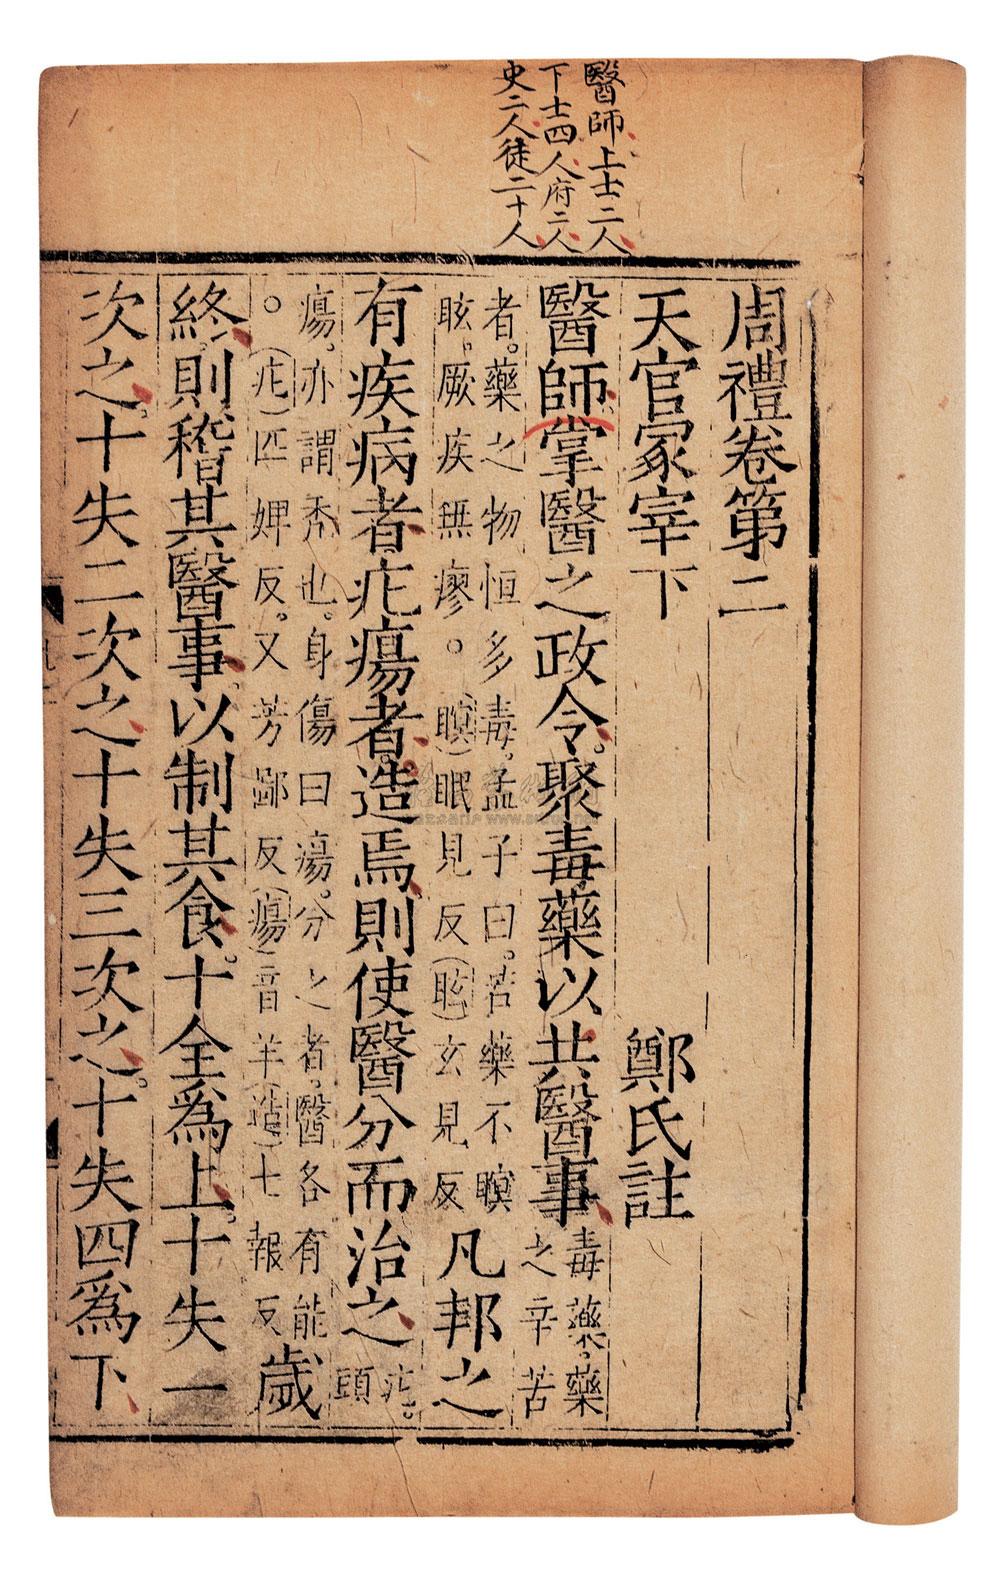 醫師上士二人
下士四人府二人
史二人徒二十人
周禮卷第二
天官冢宰下
鄭氏註
醫師掌醫之政令。聚毒藥以共醫事
毒藥。藥
之辛苦
者。藥之物恒多毒。孟子曰。若藥不瞑
眩。厥疾無瘳。(瞑)眠見反(眩)玄見反
凡邦之
有疾病者疕瘍者。造焉則使醫分而治之
疕。
頭
瘍。亦謂禿也。身傷曰瘍。分之者。醫各有能
。(疕)匹婢反。又芳鄙反(瘍)音羊(造)七報反
歲
終則稽其醫事。以制其食。十全爲上。十失一
次之。十失二次之。十失三次之。十失四爲下